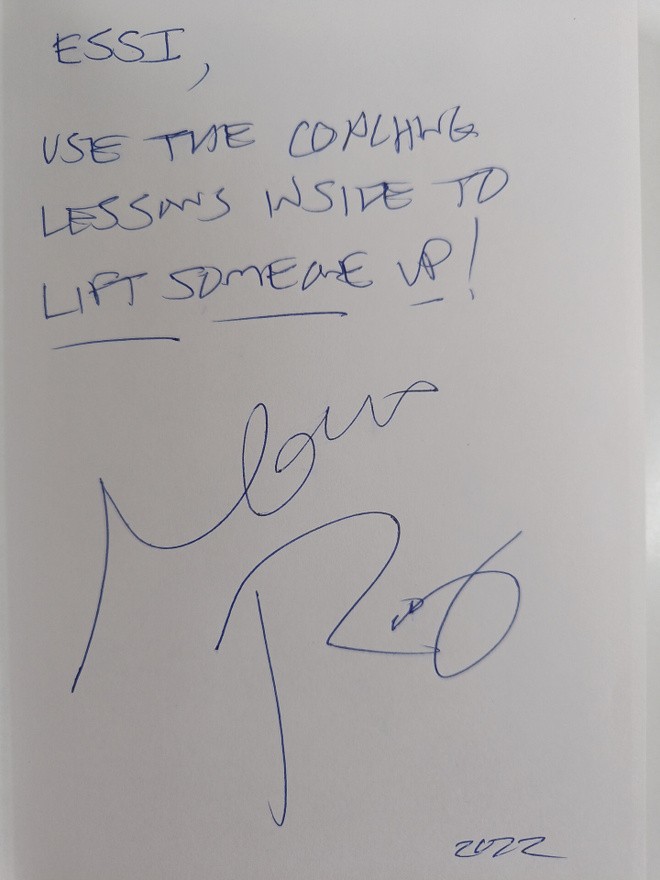 ESSI,
USE THE COACHING
LESSONS INSIDE TO
LIFT SOMEONE UP!
2022